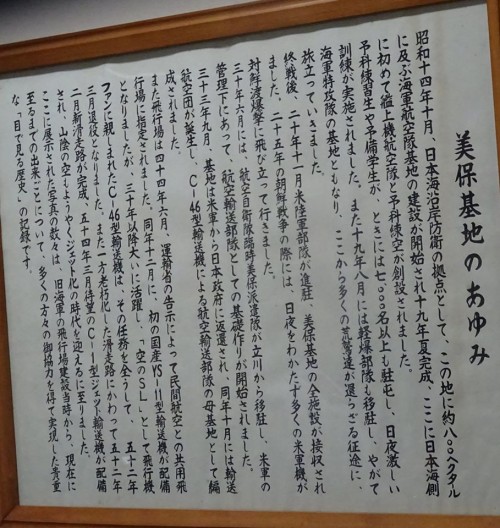 美保基地のあゆみ
昭和十四年十月、日本海沿岸防衛の拠点として、この地に約八〇ヘクタル
に及ぶ海軍航空隊基地の建設が開始され十九年夏完成、ここに日本海側
に初めて艦上機航空隊と予科練空が創設されました。
予科練習生や予備学生が、ときには七〇〇〇名以上も駐屯し、日夜激しい
訓練が実施されました。また十九年八月には軽爆部隊も移駐し、やがて
海軍特攻隊の基地ともなり、ここから多くの若鷲達が還らざる征途に、
旅立っていきました。
終戦後、二十年十一月米陸軍部隊が進駐、美保基地の全施設が接収され
ました。二十五年の朝鮮戦争の際には、日夜をわかたず多くの米軍機が
対鮮渡爆撃に飛び立って行きました。
三十年六月には、航空自衛隊臨時美保派遣隊が立川から移駐し、米軍の
管理下にあって、航空輸送部隊としての基礎作りが開始されました。
三十三年九月、基地は米軍から日本政府に返還され、同年十月には輸送
航空団が誕生し、C-46型輸送機による航空輸送部隊の母基地として編
成されました。
また飛行場は四十四年六月、運輸省の告示によって民間航空との共用飛
行場に指定されました。同年十二月に、初の国産YS-11型輸送機が配備
となりましたが、三十年以降大いに活躍し、「空のSL」として飛行機
ファンに親しまれたC-46型輸送機は、その任務を全うして、五十三年
三月退役となりました。また一方老朽化した滑走路にかわって五十二年
二月新滑走路が完成、五十四年三月待望のC-1型ジェット輸送機が配備
され、山陰の空もようやくジェット化の時代を迎えるに至りました。
ここに展示された写真の数々は、旧海軍の飛行場建設当時から、現在に
至るまでの出来ごとについて、多くの方々の御協力を得て実現した貴重
な「目で見る歴史」の記録です。